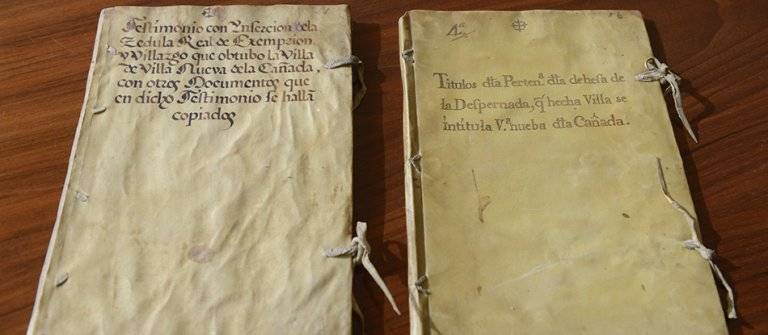 Testimonio con Ynsercion dela
Zedula Real de Exempcion
y Villazgo que obtubo la Villa
de Villa Nueva dela Cañada,
con otros Documentos que
en dicho Testimonio se hallã
copiados
4ª
Titulos dta Pertenª dta dehesa de
la Despernada, q̃ hecha Villa se
intitula Vª nueba dta Cañada.